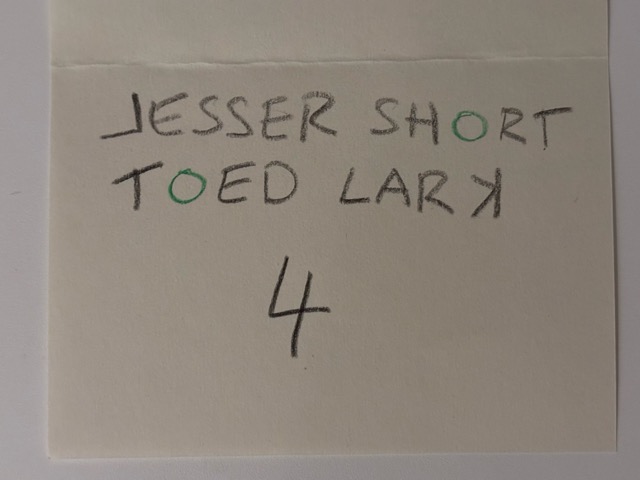 LESSER SHORT
TOED LARK
4